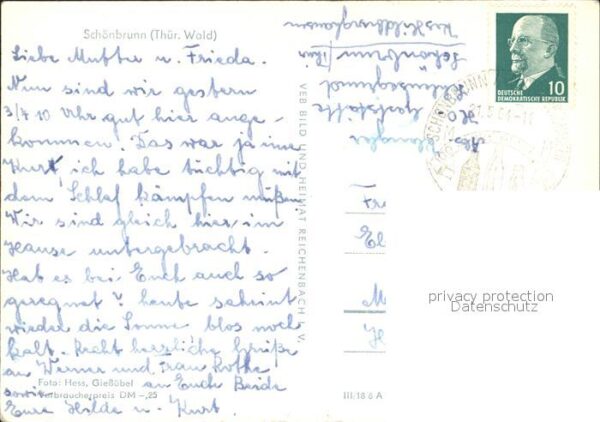 Schönbrunn (Thür. Wald)
Liebe Mutter u. Frieda.
Nun sind wir gestern
3/4 10 Uhr gut hier ange-
kommen. Das war ja ime
Kurt, ich habe tüchtig mit
dem Schlaf kämpfen müßen.
Wir sind gleich hier im
Hause untergebracht.
Hat es bei Euch auch so
geregnet? heute scheint
wieder die Sonne blos noch
kalt. Recht herzliche Grüße
an Werner und Frau Rothe
sowie an Euch Beide
Eure Hilde u. Kurt.
Foto: Hess, Gießübel
Verbraucherpreis DM -,25
VEB BILD UND HEIMAT REICHENBACH I. V.
III/18 6 A
Abs.
HO Gaststätte
Schleusegrund
Schönbrunn Thür
Krs Hildburghausen
DEUTSCHE
DEMOKRATISCHE REPUBLIK
10
SCHÖNBRUNN
Fr
El
M
H
privacy protection
Datenschutz